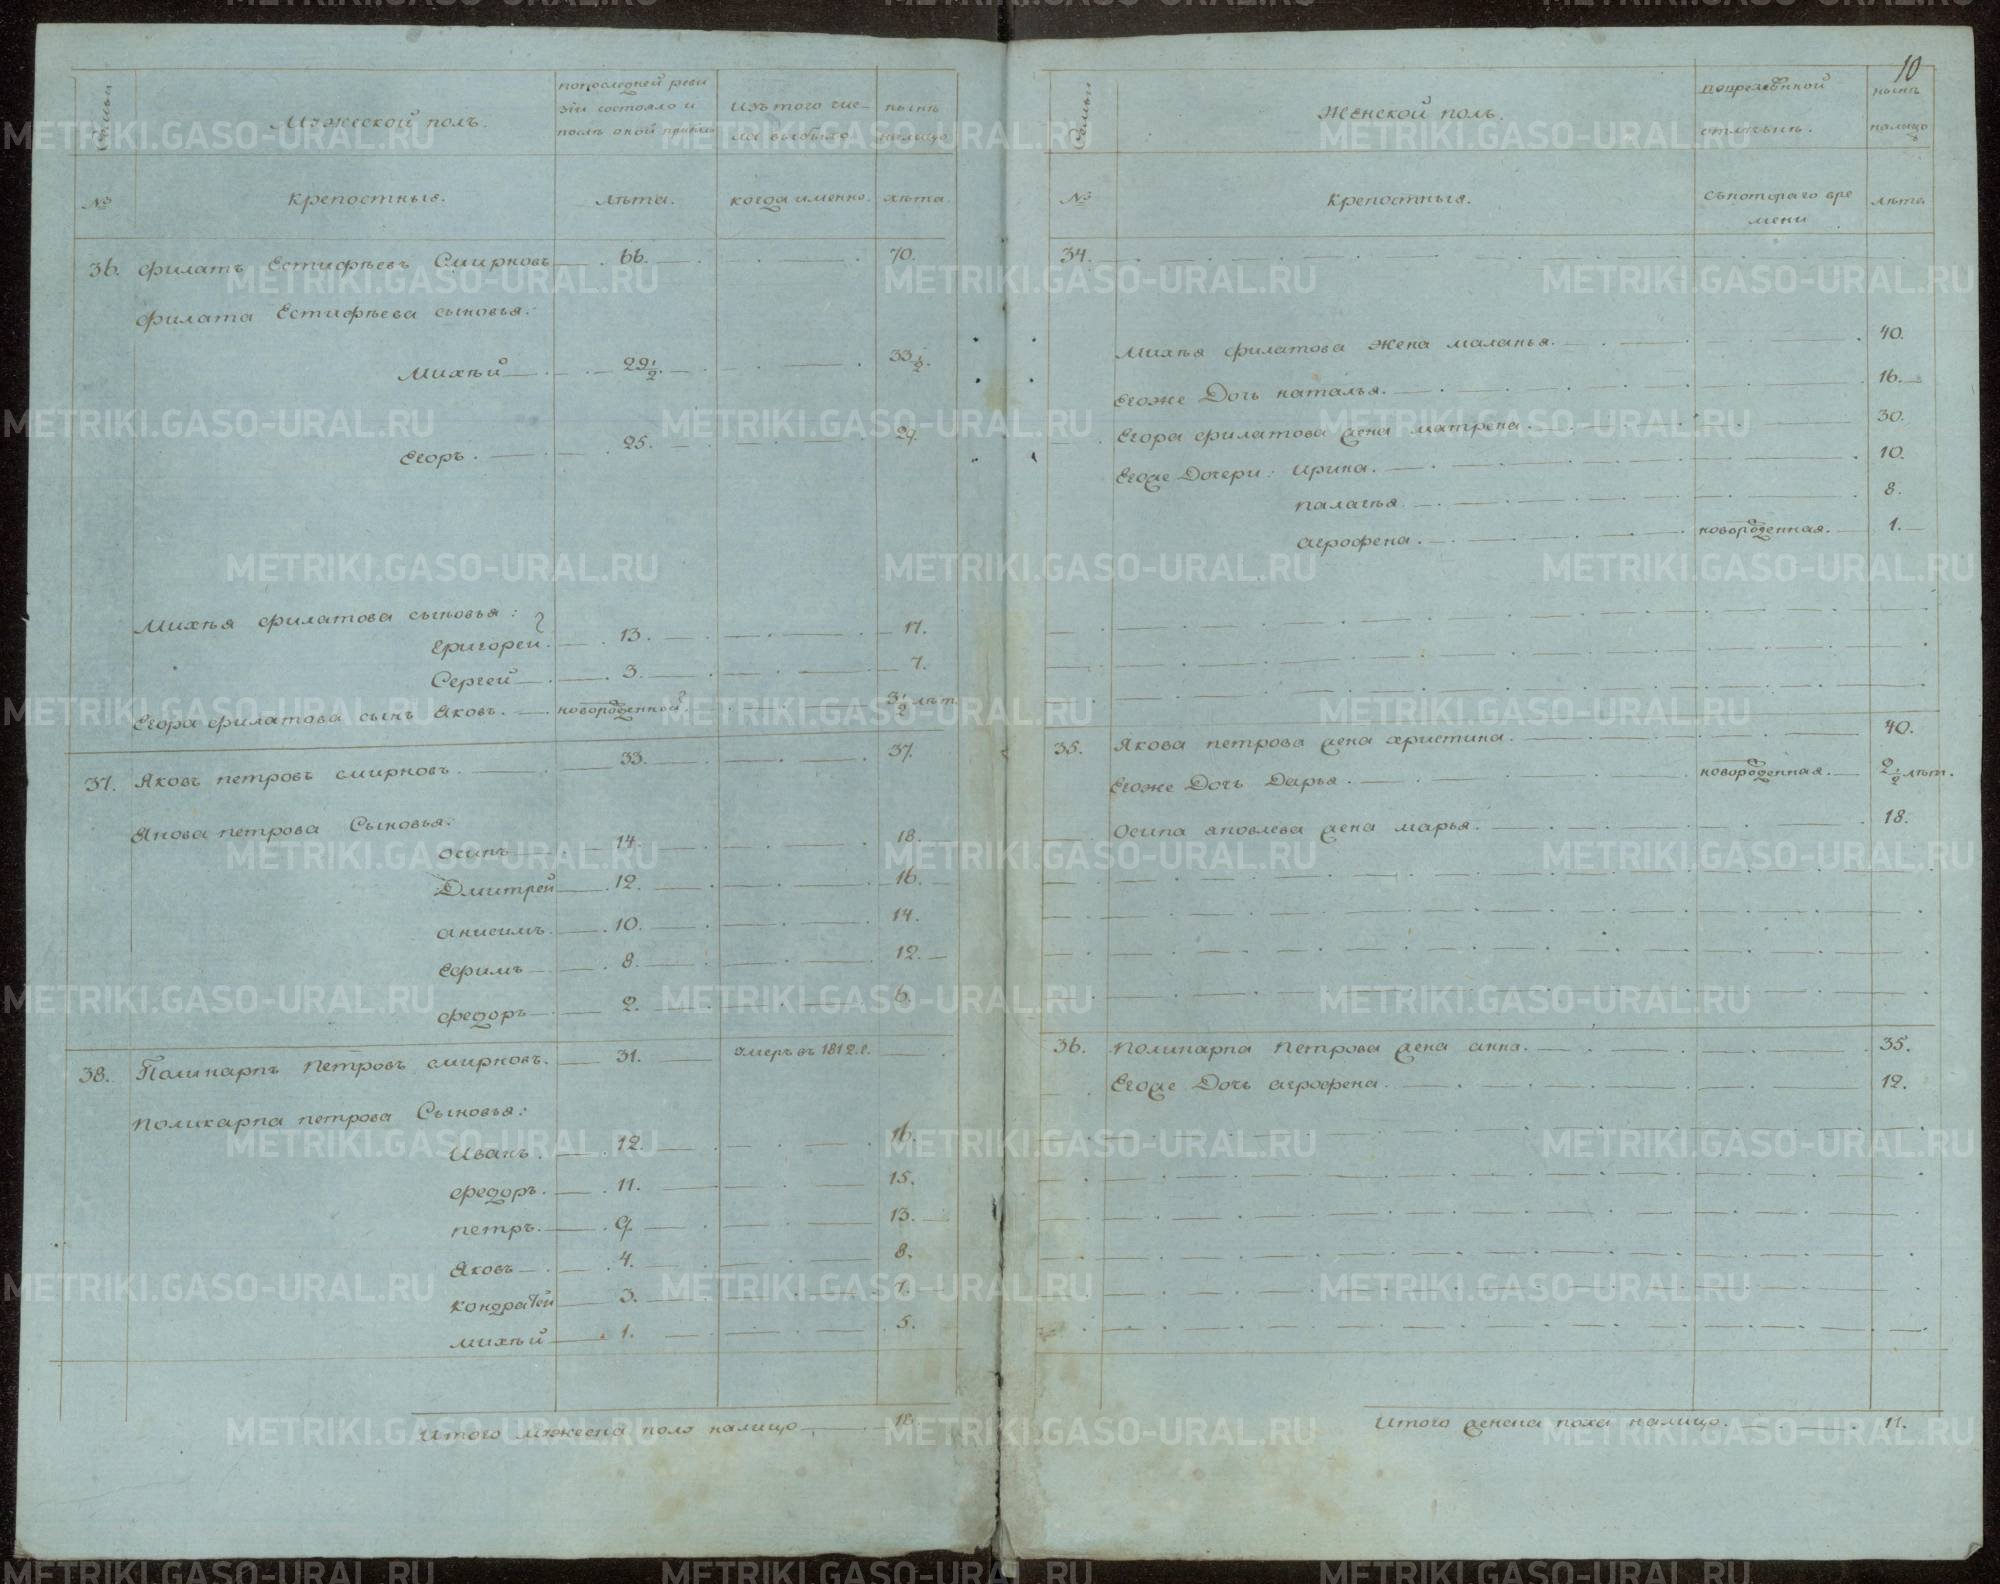 10
Семьи
Мужеской полъ.
попоследней реви
зіи состояло и
послѣ оной прибыло
изътого чис-
ла выбыло
нынѣ
налицо
№
крепостныя.
лѣта.
когда именно.
лѣта.
36. Филатъ Естифѣевъ Смирновъ 66. 70.
Филата Естифѣева сыновья:
Михѣй 29 1/2. 33 1/2.
Егоръ. 25. 29.
Михѣя Филатова сыновья:
Григорей. 13. 17.
Сергей 3. 7.
Егора Филатова сынъ Яковъ. новорожденной 3 1/2 лѣт.
37. Яковъ петровъ смирновъ. 33. 37.
Якова петрова Сыновья:
осипъ 14. 18.
Дмитрей 12. 16.
анисимъ. 10. 14.
Ефимъ 8. 12.
федоръ 2. 6.
38. Поликарпъ Петровъ смирновъ. 31. умеръ въ 1812.г.
Поликарпа петрова Сыновья:
Иванъ. 12. 16.
федоръ. 11. 15.
петръ. 9. 13.
Яковъ 4. 8.
кондратей 3. 7.
михѣй 1. 5.
Итого мужеска полу налицо 18.
Семьи
Женской полъ.
повременной
отлучкѣ.
нынѣ
налицо
№
крепостныя.
съкотораго вре
мени
лѣта
34.
Михѣя филатова жена маланья. 40.
Егоже Дочь наталья. 16.
Егора филатова жена матрена. 30.
Егоже Дочери: ирина. 10.
палагѣя 8.
агрофена. новорожденная. 1.
35. Якова петрова жена христина. 40.
Егоже Дочь Дарья. новорожденная. 2 1/2 лѣт.
Осипа яковлева жена марья. 18.
36. Поликарпа Петрова жена анна. 35.
Егоже Дочь агрофена. 12.
Итого женска пола налицо. 11.
METRIKI.GASO-URAL.RU